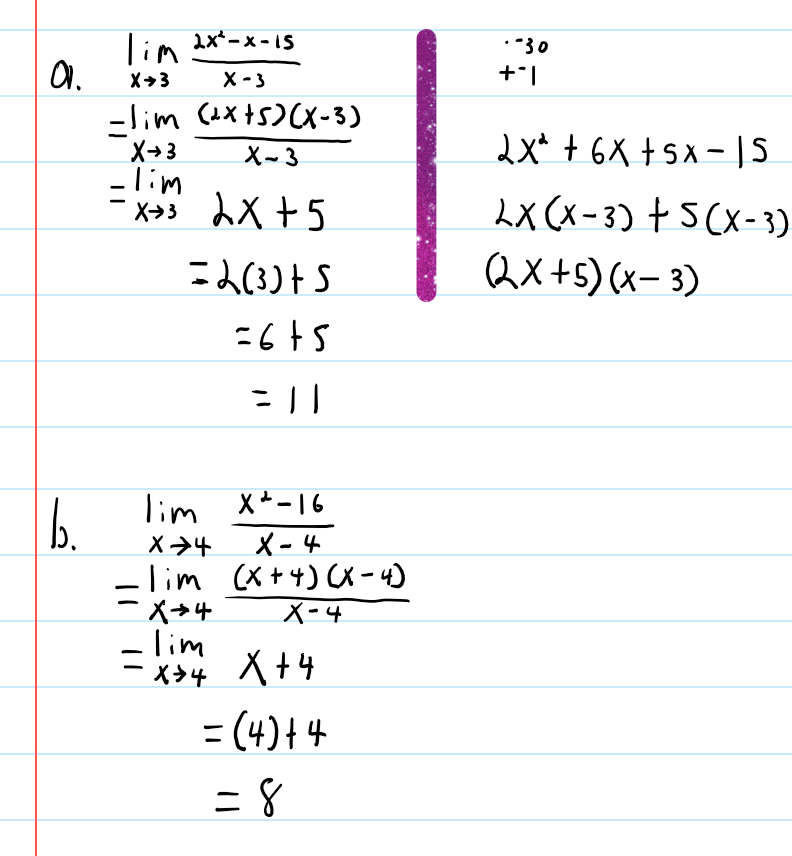 a. lim x→3 (2x²-x-15)/(x-3)
= lim x→3 ((2x+5)(x-3))/(x-3)
= lim x→3 2x+5
= 2(3)+5
= 6+5
= 11
· -30
+ -1
2x² + 6x + 5x - 15
2x(x-3) + 5(x-3)
(2x+5)(x-3)
b. lim x→4 (x²-16)/(x-4)
= lim x→4 ((x+4)(x-4))/(x-4)
= lim x→4 x+4
= (4)+4
= 8